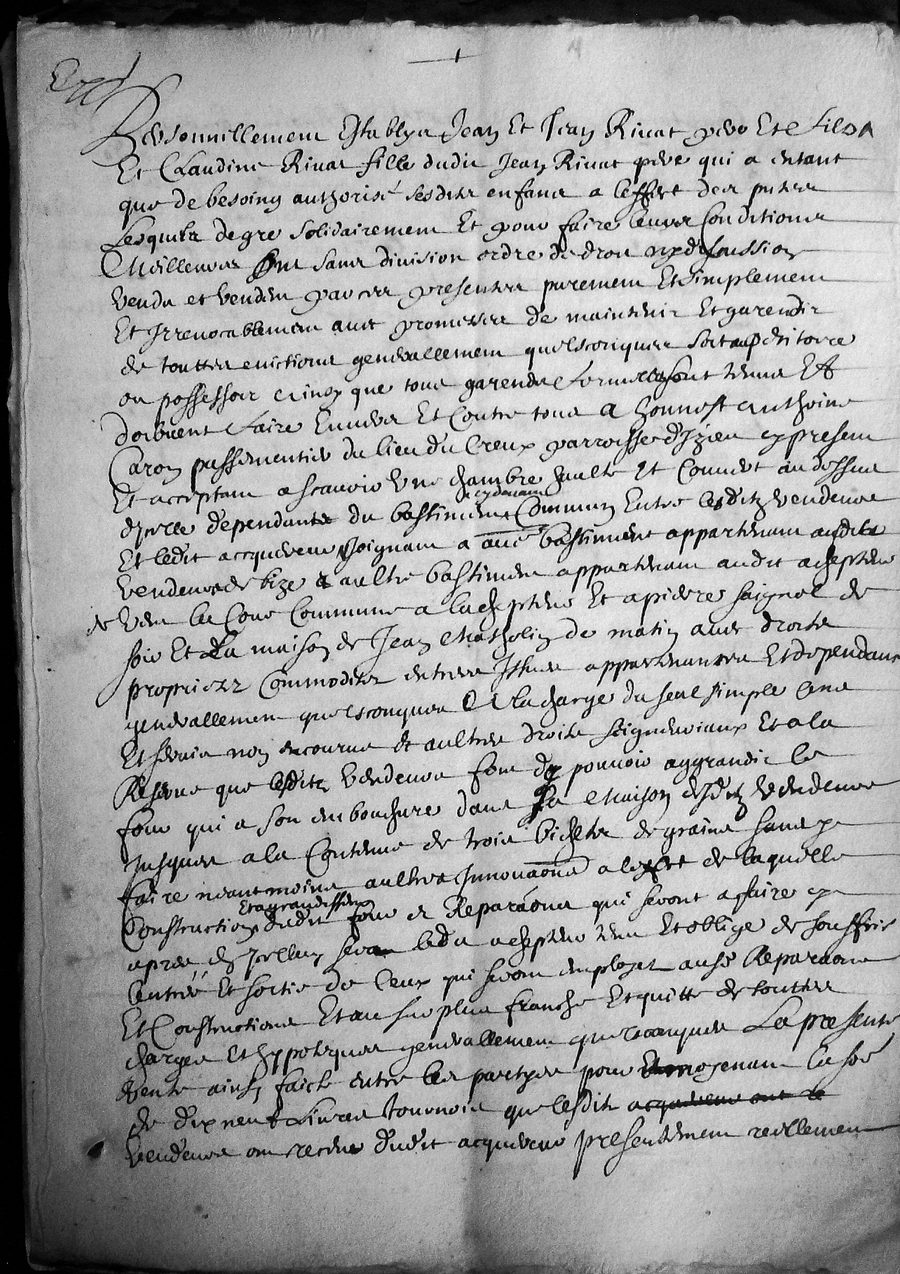 Personnillement Establys Jean Et Jean Rivat pere Et filz
Et Claudine Rivat fille dudit Jean Rivat pere qui a entant
que de besoing authorisé sesdits enfans a l'effect des pntes
Lesquelz de gre solidairement Et pour faire leurs Conditions
Meilleures Ont sans division ordre de droit ny discussion
vendu et vendent par ces presentes purement Et simplement
Et Irrevocablement avec promesse de maintenir Et garendir
de touttes evictions generallement quelsconques soit au petitoire
ou possessoir Ainsy que tous garends formels sont tenus Et
doibvent faire Envers Et Contre tous A honnest Anthoine
Caron passementier du lieu du Creux parroisse d'Izieu cy present
Et acceptant a scavoir Une chambre haulte Et Couvert au dessus
d'icelle dependants du bastiment Commun Entre lesditz vendeurs
cydevant
Et ledit acquereur Joignant a autre bastiment appartenant ausdits
vendeurs de bize & aultre bastiment appartenant audit achepteur
de vent la Cour Commune a l'achepteur Et a pierre saignol de
soir Et La maison de Jean Matholin de matin avec droits
proprietez Commoditez entrees Issues appartenances Et dependances
generallement quelsconques A la charge du seul simple Cens
Et servis non encourus & aultres droits seigneuriaux Et a la
Reserve que lesditz vendeurs font de pouvoir aggrandir le
four qui a son embouchure dans la Maison desditz vendeurs
Jusques a la Contenue de trois bichets de graine sans y
faire neantmoins aultres Innovations a l'effect de laquelle
Construction dudit four & Reparaons qui seront a faire cy
Et agrandissement
apres en Icelluy sera ledit achepteur tenu Et oblige de souffrir
l'entrée Et sortie de Ceux qui seront employes ausd Reparaons
Et Constructions Et au surplus franche Et quitte de touttes
charges Et hypoteques generallement quelconques La presente
vente ainsy faicte entre les partyes pour Et moyenant la so͞e
de dix neuf Livres tournois que lesditz
vendeurs ont receus dudit acquereur presentement reellement